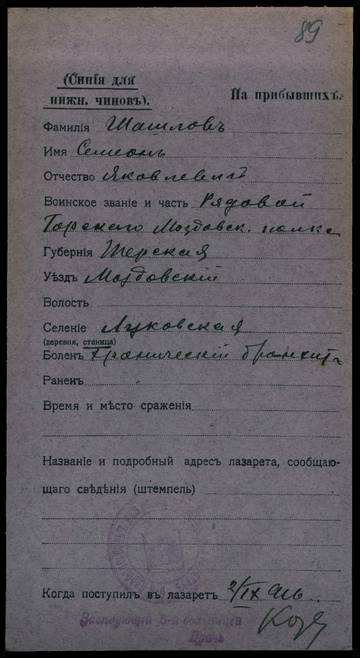 89
(Синія для
нижн. чиновъ).
На прибывшихъ.
Фамилія Шашловъ
Имя Семеонъ
Отчество Яковлевий
Воинское званіе и часть Рядовой
Горскаго Моздовск. полка
Губернія Терская
Уѣздъ Моздовскій
Волость
Селеніе Луковская
(деревня, станица)
Боленъ Хроническій бронхитъ
Раненъ
Время и мѣсто сраженія
Названіе и подробный адресъ лазарета, сообщаю-
щаго свѣдѣнія (штемпель)
Когда поступилъ въ лазаретъ 2/IX
Завѣдующій 5-й больницей
Врачъ